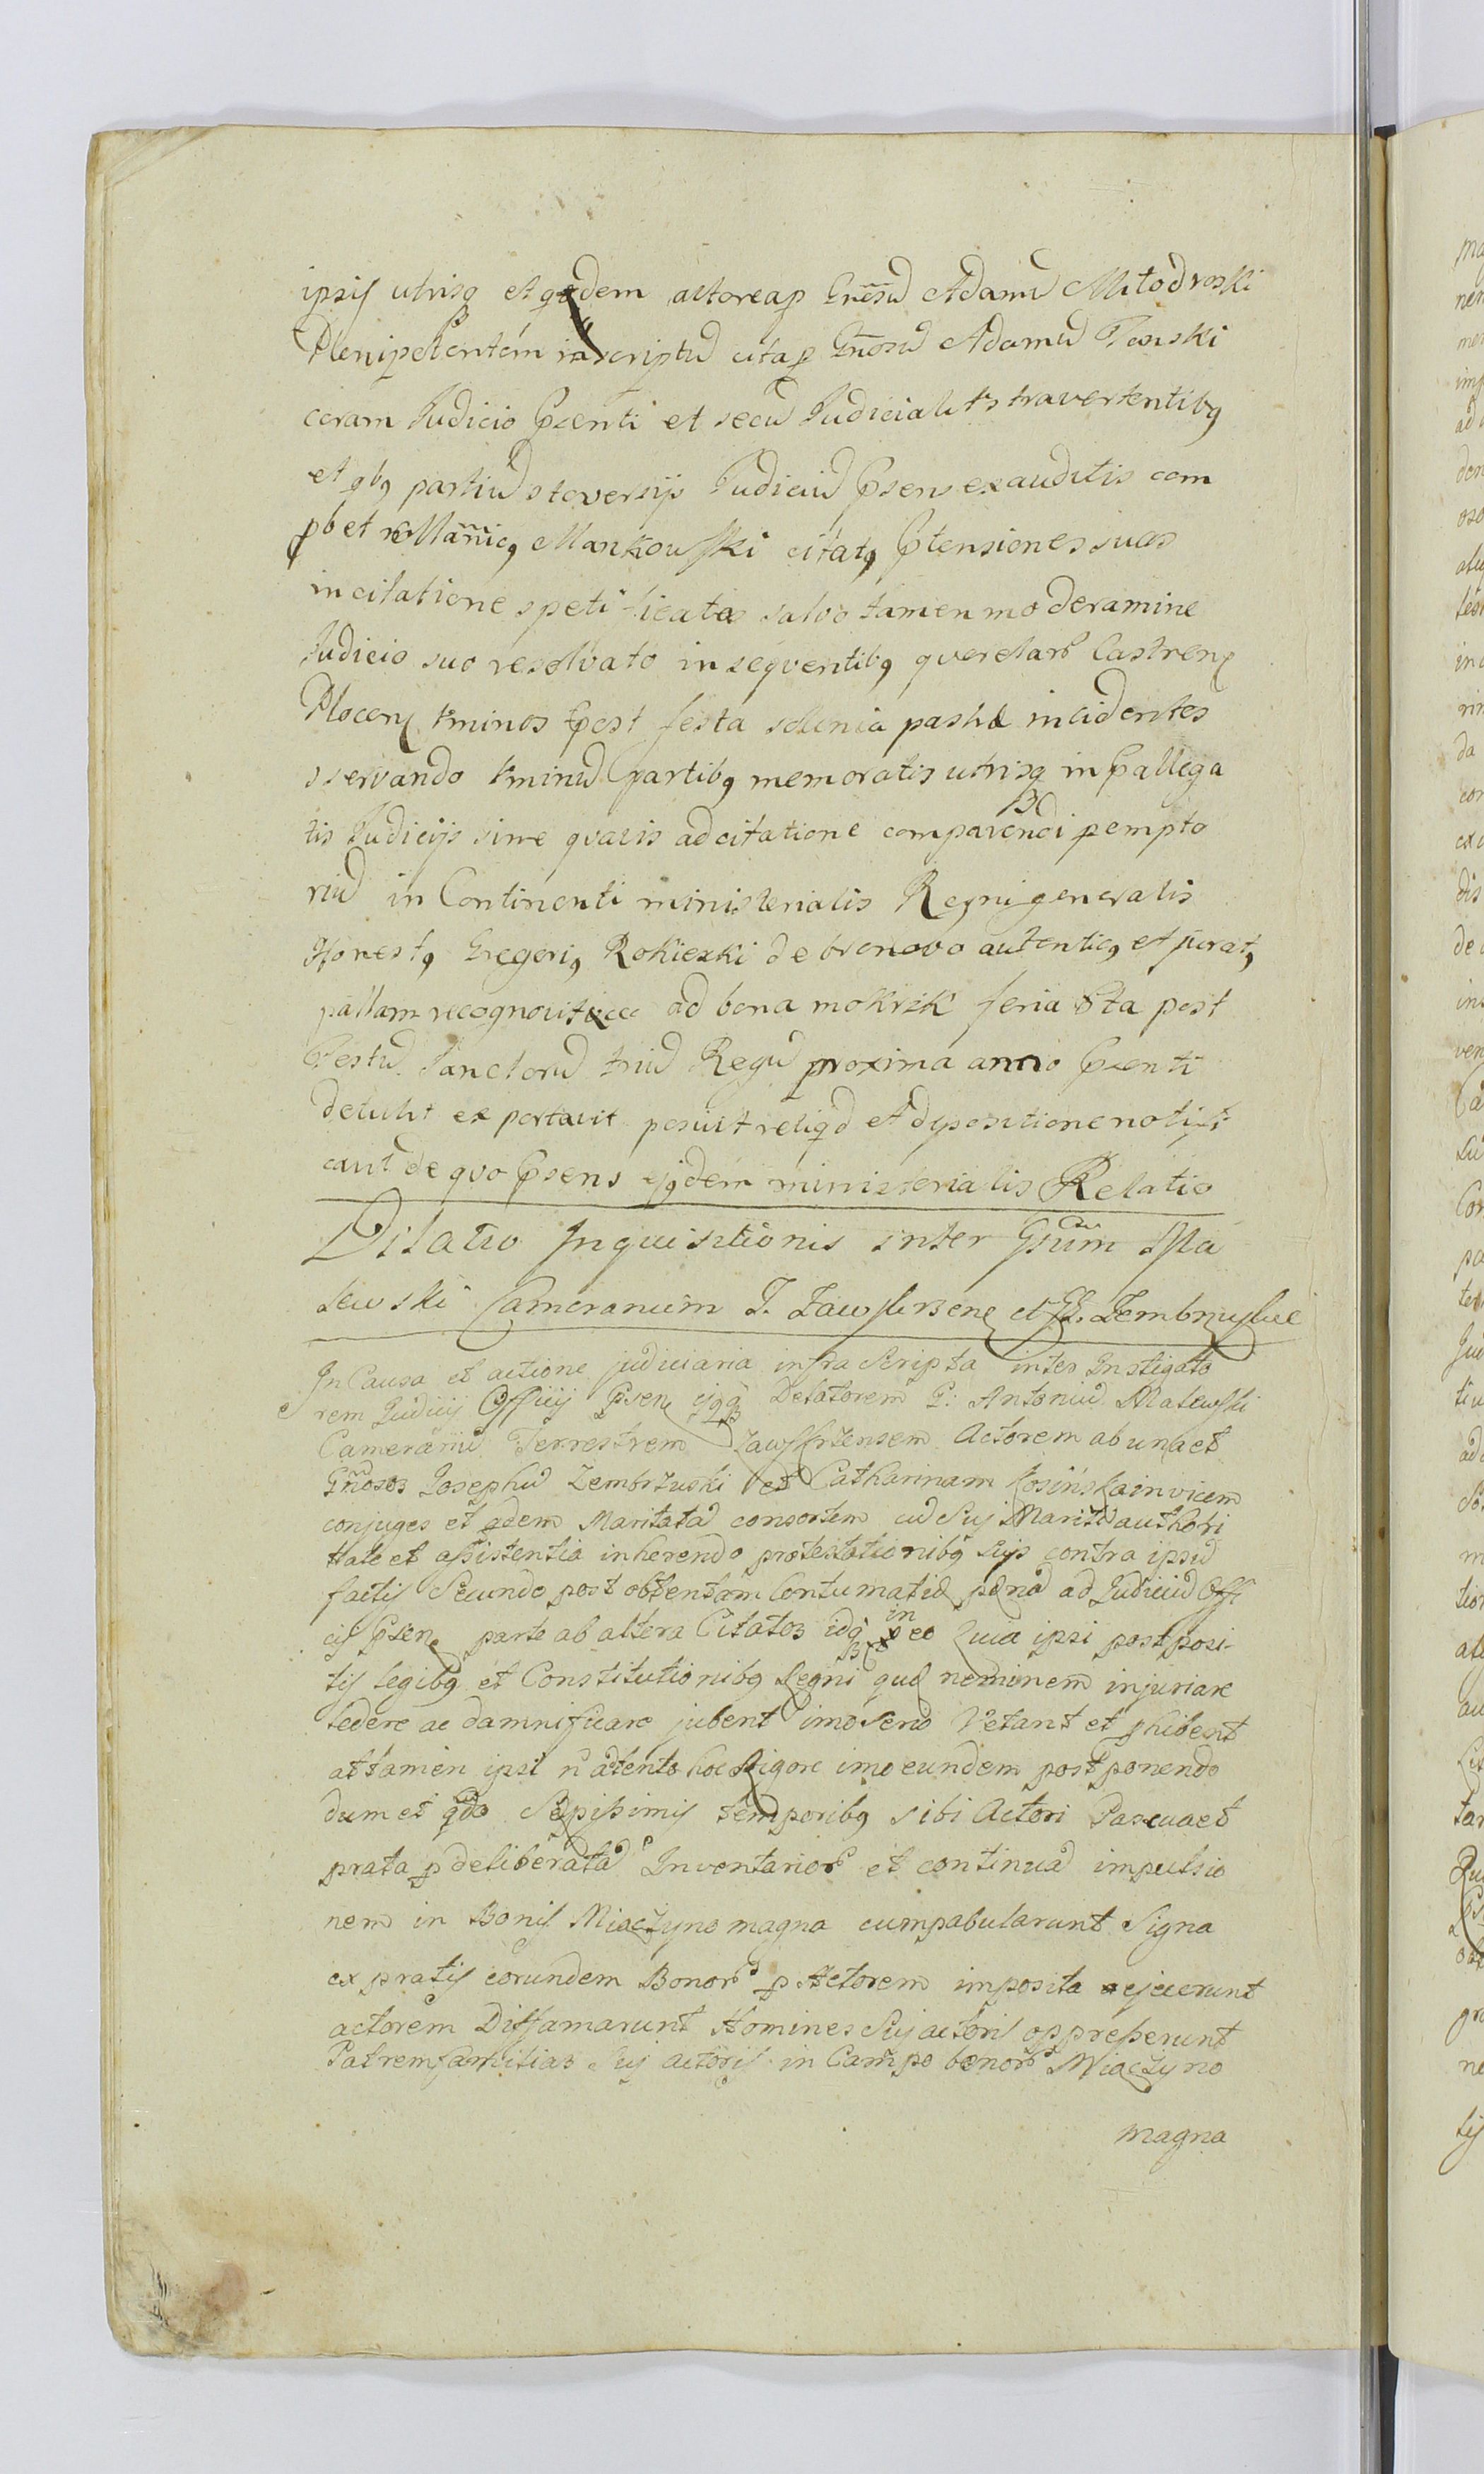 ipsis utrisq et qdem actorea p Gnosu Adamu Młodwski
Plenipotentem inscriptu cita p Gnosu Adamu Tański
coram Judicio Psenti et secu Judicialit travertentibq
et qbq partiu stoversijs Judiciu Psens exauditis com
pbet Mannicq Mankowski citatq Ptensiones suas
in citatione spetificatas salvo tamen moderamine
Judicio suo resolvato in seqventibq qverelar Castren
Plocen tminos post festa solenia pashæ incidentes
sservando tminu Partibq memoratis utrisq in Pallega
tis Judicijs sine qvavis adcitatione comparendi pempto
riu in Continenti ministerialis Regni generalis
Honestq Gregoriq Rokicki de bronovo autenticq et jurat
pallam recognovit ad bona mokrzk feria 6ta post
Festu Sanctoru triu Regu proxima anno Psenti
detulit exportavit posuit reliqd et depositione notifi
cavit de qvo Psens ejqdem ministerialis Relatio
Dilatio Inquisitionis inter Gsum Ma
lewski Cameranum T. Zawskrzen et GG. Zembrzuscie
In Causa et actione judiciaria infra scripta inter Instigato
rem Judicij Officij Psen ejqq Delatorem G: Antoniu Malewski
Camerariu Terrestrem Zawskrzensem Actorem ab una et
Gnosos Josephu Zembrzuski et Catharinam Kosinska invicem
conjuges et qdem Maritata consortem cu Sui Mariti authori
tate et assistentia inherendo protestationibq suis contra ipsu
factis Secundo post obtentam Contumatiæ pæna ad Judiciu Offi
cij Psen parte ab altera Citatos idq in eo Quia ipsi postposi-
tis legibq et Constitutionibq Regni quæ neminem injuriare
ledere ac damnificare jubent imo serio Vetant et phibent
attamen ipsi n atento hoc Rigore imo eundem postponendo
dum et qdo Sæpissimis temporibq sibi Actori Pascua et
prata p deliberata Inventarior et continua impulsio
nem in Bonis Miączyno magna cumpabularunt Signa
ex pratis eorundem Bonor p Actorem imposita ejecerunt
actorem Diffamarunt Homines Sui actoris oppresserunt
Patremfamilias Sui actoris in Campo bonor Miączyno
magna